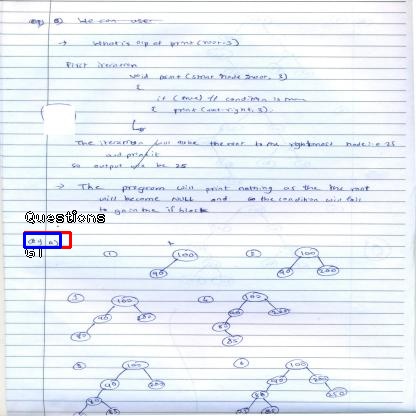 We can user
→ What is o/p of print (root, 3)
First iteration
void print (struct node *root, 3)
{
if (true) // condition is true
{ print (root→right, 3).
The iteration will take the root to the rightmost node i.e 25
and print it
so output will be 25
→ The program will print nothing as the the root
will become NULL and so the condition will fail
to gain the if block
Questions
Q4 a)
61
1 100 2 100
90 90 200
3 100 4 100
90 200 90 200
80 80
85
5 100 6 100
90 200 90 200
80 80 250
85